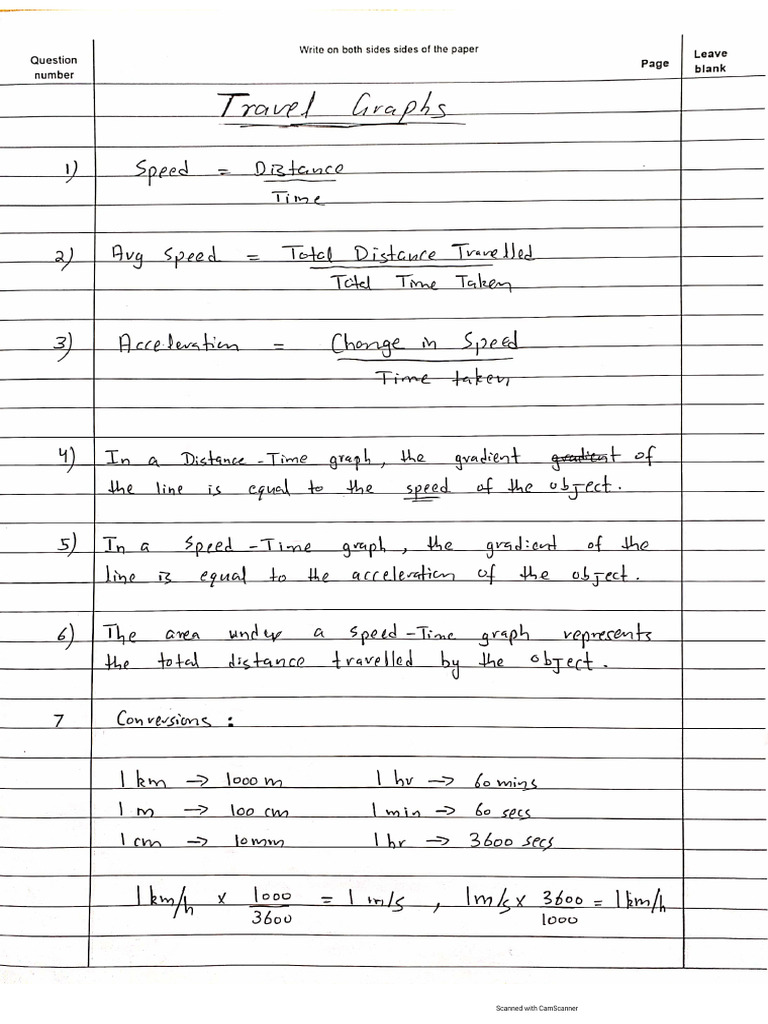 Write on both sides sides of the paper
Question number
Page
Leave blank
Travel Graphs
1) Speed = Distance / Time
2) Avg Speed = Total Distance Travelled / Total Time Taken
3) Acceleration = Change in Speed / Time taken
4) In a Distance-Time graph, the gradient gradient of
the line is equal to the speed of the object.
5) In a Speed-Time graph, the gradient of the
line is equal to the acceleration of the object.
6) The area under a Speed-Time graph represents
the total distance travelled by the object.
7 Conversions :
1 km -> 1000 m 1 hr -> 60 mins
1 m -> 100 cm 1 min -> 60 secs
1 cm -> 10mm 1 hr -> 3600 secs
1 km/h × 1000/3600 = 1 m/s , 1m/s × 3600/1000 = 1km/h
Scanned with CamScanner